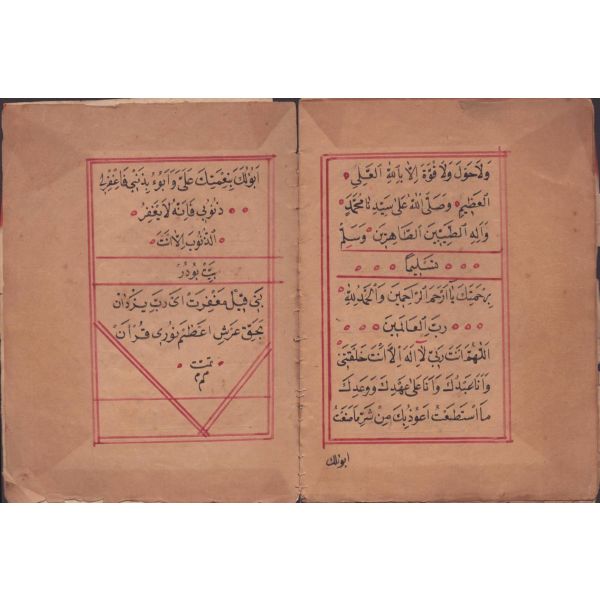 وَلَا حَوْلَ وَلَا قُوَّةَ اِلَّا بِاللّٰهِ الْعَلِيِّ
الْعَظِيمِ وَصَلَّى اللّٰهُ عَلٰى سَيِّدِنَا مُحَمَّدٍ
وَاٰلِهِ الطَّيِّبِينَ الطَّاهِرِينَ وَسَلِّمْ
تَسْلِيمًا
بِرَحْمَتِكَ يَا اَرْحَمَ الرَّاحِمِينَ وَالْحَمْدُ لِلّٰهِ
رَبِّ الْعَالَمِينَ
اَللّٰهُمَّ اَنْتَ رَبِّي لَا اِلٰهَ اِلَّا اَنْتَ خَلَقْتَنِي
وَاَنَا عَبْدُكَ وَاَنَا عَلٰى عَهْدِكَ وَوَعْدِكَ
مَا اسْتَطَعْتُ اَعُوذُ بِكَ مِنْ شَرِّ مَا صَنَعْتُ
ابوئلك
اَبُوئُلَكَ بِنِعْمَتِكَ عَلَيَّ وَاَبُوءُ بِذَنْبِي فَاغْفِرْلِي
ذُنُوبِي فَاِنَّهُ لَا يَغْفِرُ
الذُّنُوبَ اِلَّا اَنْتَ
بَيْت بُودُرْ
بَنِي قِيلْ مَغْفِرَتْ اَىْ رَبِّ يَزْدَانْ
بِحَقِّ عَرْشِ اَعْظَمْ نُورِى قُرْاٰنْ
تمت